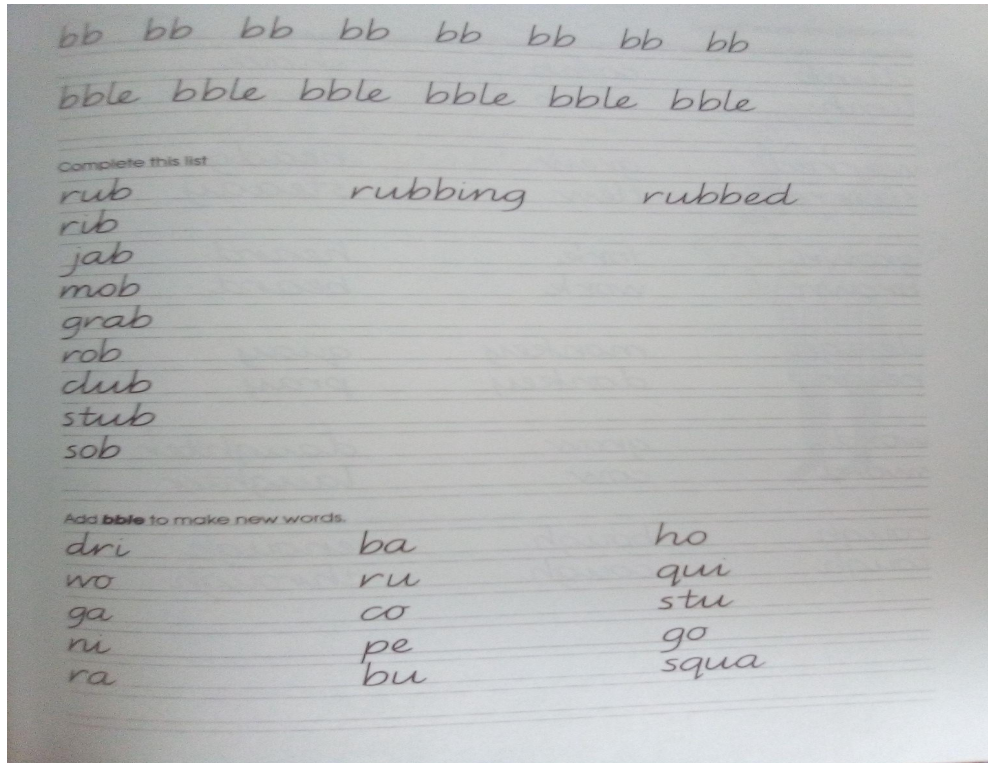 bb bb bb bb bb bb bb bb
bble bble bble bble bble bble
Complete this list
rub rubbing rubbed
rib
jab
mob
grab
rob
dub
stub
sob
Add bble to make new words.
dri ba ho
wo ru qui
ga co stu
ni pe go
ra bu squa